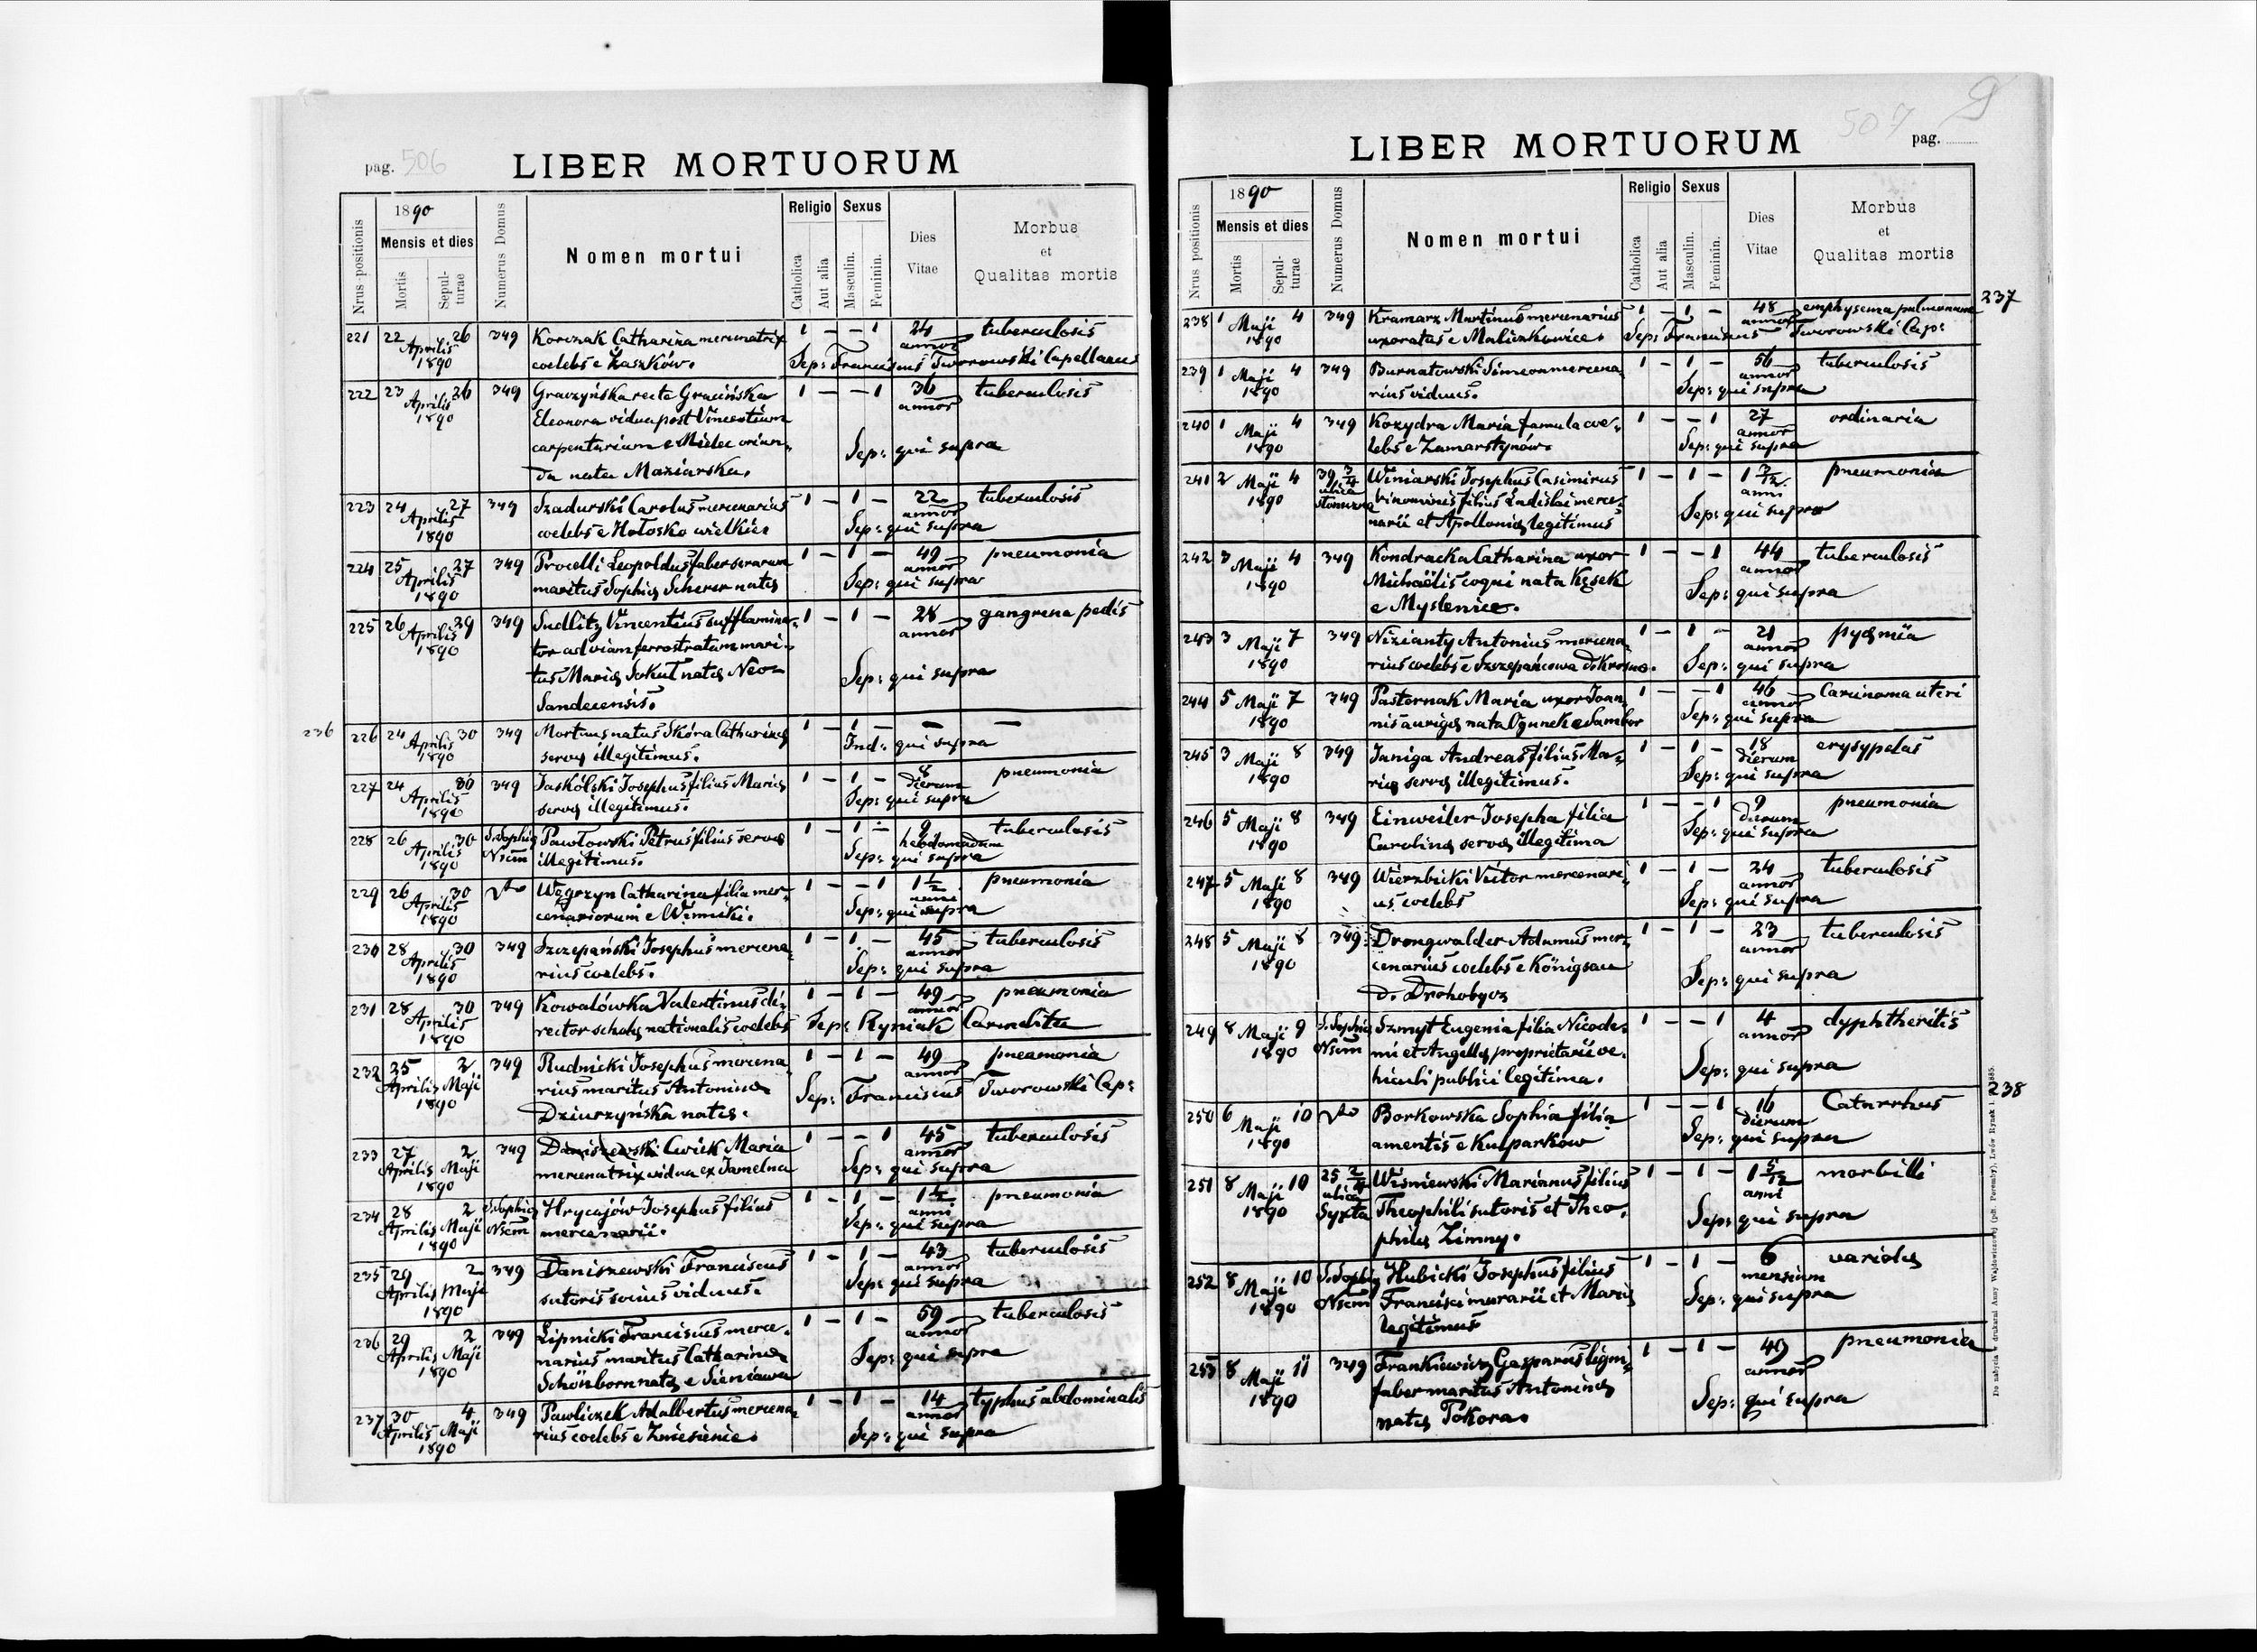 pag. 506
LIBER MORTUORUM
Nrus positionis
1890
Mensis et dies
Mortis
Sepul-
turae
Numerus Domus
Nomen mortui
Religio
Catholica
Aut alia
Sexus
Masculin.
Feminin.
Dies
Vitae
Morbus
et
Qualitas mortis
221 22 26 349 Korczak Catharina mercenatrix 1 – – 1 24 tuberculosis
Aprilis annor
1890 coelebs e Zaszków. Sep: Franciscus Tworowski Capellanus
222 23 26 349 Graczyńska recte Gracińska 1 – – 1 36 tuberculosis
Aprilis annor
1890 Eleonora vidua post Vincentium
carpentarium e Mielec oriun- Sep: qui supra
da nata Maziarska.
223 24 27 349 Szadurski Carolus mercenarius 1 – 1 – 22 tuberculosis
Aprilis annor
1890 coelebs e Hołosko wielkie. Sep: qui supra
224 25 27 349 Procelli Leopoldus faber serarum 1 – 1 – 49 pneumonia
Aprilis annor
1890 maritus Sophiæ Scherer natæ Sep: qui supra
225 26 29 349 Sudlitz Vincentius sufflamina- 1 – 1 – 28 gangrena pedis
Aprilis annor
1890 tor ad viam ferrostratam mari-
tus Mariæ Sokuł natæ Neo- Sep: qui supra
Sandecensis.
236
226 24 30 349 Mortuus natus Skóra Catharinæ 1 – 1 – – –
Aprilis
1890 servæ illegitimus. Ind: qui supra
227 24 30 349 Jaskólski Josephus filius Mariæ 1 – 1 – 8 pneumonia
Aprilis dierum
1890 servæ illegitimus. Sep: qui supra
228 26 30 S. Sophiæ Pawłowski Petrus filius servæ 1 – 1 – 9 tuberculosis
Aprilis Nsum hebdomadum
1890 illegitimus. Sep: qui supra
229 26 30 Węgrzyn Catharina filia mer- 1 – – 1 1 1/2 pneumonia
Aprilis anni
1890 cenariorum e Winniki. Sep: qui supra
230 28 30 349 Szczepański Josephus mercena- 1 – 1 – 45 tuberculosis
Aprilis annor
1890 rius coelebs. Sep: qui supra
231 28 30 349 Kowalówka Valentinus di- 1 – 1 – 49 pneumonia
Aprilis annor
1890 rector scholæ nationalis coelebs Sep: Ryniak Carmelita
232 25 2 349 Rudnicki Josephus mercena- 1 – 1 – 49 pneumonia
Aprilis Maji annor
1890 rius maritus Antoninæ Sep: Franciscus Tworowski Cap:
Dziurzyńska natæ.
233 27 2 349 Daniszewski Cwiek Maria 1 – – 1 45 tuberculosis
Aprilis Maji annor
1890 mercenatrix vidua ex Jamelna Sep: qui supra
234 28 2 S. Sophiæ Hrycajów Josephus filius 1 – 1 – 1 1/2 pneumonia
Aprilis Maji Nsum anni
1890 mercenarii. Sep: qui supra
235 29 2 349 Daniszewski Franciscus 1 – 1 – 43 tuberculosis
Aprilis Maji annor
1890 sutoris socius viduus. Sep: qui supra
236 29 2 349 Lipnicki Franciscus merce- 1 – 1 – 59 tuberculosis
Aprilis Maji annor
1890 narius maritus Catharinæ Sep: qui supra
Schönborn natæ e Sieniawa
237 30 4 349 Pawliczek Adalbertus mercena- 1 – 1 – 14 typhus abdominalis
Aprilis Maji annor
1890 rius coelebs e Zniesienie. Sep: qui supra
507
LIBER MORTUORUM
pag.
Nrus positionis
1890
Mensis et dies
Mortis
Sepul-
turae
Numerus Domus
Nomen mortui
Religio
Catholica
Aut alia
Sexus
Masculin.
Feminin.
Dies
Vitae
Morbus
et
Qualitas mortis
237
238 1 Maji 4 349 Kramarz Martinus mercenarius 1 – 1 – 48 emphysema pulmonum
annor
1890 uxoratus e Maliczkowice. Sep: Franciscus Tworowski Cap:
239 1 Maji 4 349 Burnatowski Simeon mercena- 1 – 1 – 56 tuberculosis
annor
1890 rius viduus. Sep: qui supra
240 1 Maji 4 349 Kozydra Maria famula coe- 1 – – 1 27 ordinaria
annor
1890 lebs e Zamarstynów. Sep: qui supra
241 2 Maji 4 39 3/4 Winiarski Josephus Casimirus 1 – 1 – 1 3/12 pneumonia
ulica anni
1890 binominis filius Ladislai merce-
narii et Apolloniæ legitimus Sep: qui supra
242 3 Maji 4 349 Kondracka Catharina uxor 1 – – 1 44 tuberculosis
annor
1890 Michaëlis coqui nata Kęsek Sep: qui supra
e Myslenice.
243 3 Maji 7 349 Nizianty Antonius mercena- 1 – 1 – 21 pyæmia
annor
1890 rius coelebs e Szczepańcowa D. Krosno. Sep: qui supra
244 5 Maji 7 349 Pasternak Maria uxor Joan- 1 – – 1 46 Carcinoma uteri
annor
1890 nis aurigæ nata Ogunek e Sambor Sep: qui supra
245 3 Maji 8 349 Janiga Andreas filius Ma- 1 – 1 – 18 erysypelas
dierum
1890 riæ servæ illegitimus. Sep: qui supra
246 5 Maji 8 349 Einweiler Josepha filia 1 – – 1 9 pneumonia
dierum
1890 Carolinæ servæ illegitima Sep: qui supra
247 5 Maji 8 349 Wierzbicki Victor mercenari- 1 – 1 – 24 tuberculosis
annor
1890 us coelebs Sep: qui supra
248 5 Maji 8 349 Drongwalder Adamus mer- 1 – 1 – 23 tuberculosis
annor
1890 cenarius coelebs e Königsau Sep: qui supra
D. Drohobycz
249 8 Maji 9 S. Sophiæ Szmyt Eugenia filia Nicode- 1 – – 1 4 dyphtheritis
Nsum annor
1890 mi et Angellæ proprietarii ve-
hiculi publici legitima. Sep: qui supra
238
250 6 Maji 10 Borkowska Sophia filia 1 – – 1 16 Catarrhus
dierum
1890 amentis e Kulparków Sep: qui supra
251 8 Maji 10 25 2/4 Wisniewski Marianus filius 1 – 1 – 1 5/12 morbilli
ulica anni
1890 Syxta Theophili sutoris et Theo-
philæ Zimny. Sep: qui supra
252 8 Maji 10 S. Sophiæ Hubicki Josephus filius 1 – 1 – 6 variola
mensium
1890 Nsum Francisci murarii et Mariæ Sep: qui supra
legitimus
253 8 Maji 11 349 Frankiewicz Gasparus ligni- 1 – 1 – 49 pneumonia
annor
1890 faber maritus Antoninæ Sep: qui supra
natæ Pokora.